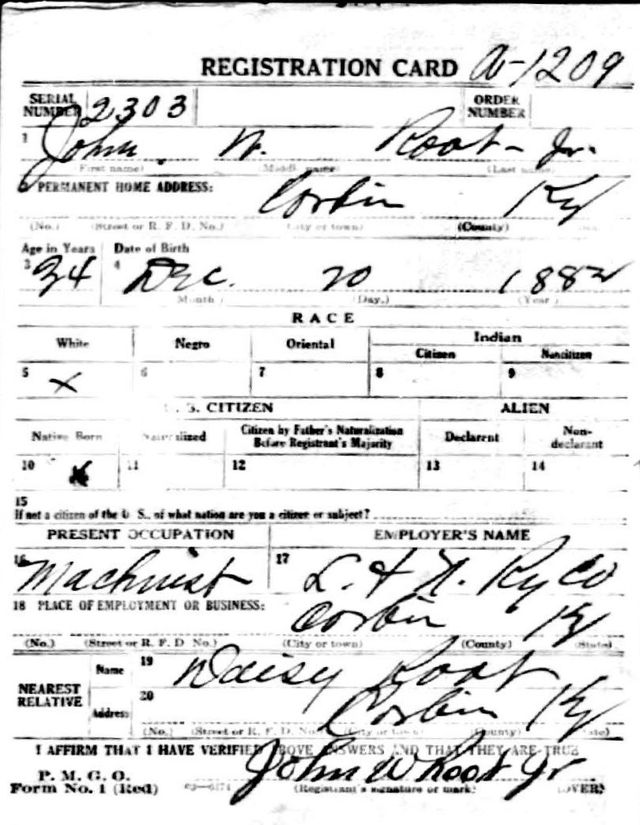 REGISTRATION CARD A-1209
SERIAL NUMBER 2303 ORDER NUMBER
1 John W. Root - Jr.
(First name) (Middle name) (Last name)
2 PERMANENT HOME ADDRESS: Corbin Ky
(No.) (Street or R. F. D. No.) (City or town) (County)
Age in Years Date of Birth
3 34 4 Dec. 20 1882
(Month) (Day.) (Year)
RACE
White Negro Oriental Indian
Citizen Noncitizen
5 x 6 7 8 9
U. S. CITIZEN ALIEN
Native Born Naturalized Citizen by Father's Naturalization Before Registrant's Majority Declarent Non-declarant
10 x 11 12 13 14
15
If not a citizen of the U. S., of what nation are you a citizen or subject?
PRESENT OCCUPATION EMPLOYER'S NAME
16 Machinist 17 L. & N. Ry Co
18 PLACE OF EMPLOYMENT OR BUSINESS: Corbin Ky
(No.) (Street or R. F. D. No.) (City or town) (County) (State)
NEAREST RELATIVE Name 19 Daisy Root
Address 20 Corbin Ky
(No.) (Street or R. F. D. No.) (City or town) (County) (State)
I AFFIRM THAT I HAVE VERIFIED ABOVE ANSWERS AND THAT THEY ARE TRUE
P. M. G. O.
Form No. 1 (Red) John W Root Jr
(Registrant's signature or mark) (OVER)